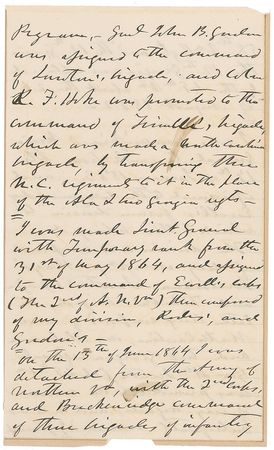 Pegram, – Genl John B. Gordon
was assigned to the command
of Lawton's brigade, and Colon
R. F. Hoke was promoted to the
command of Trimble's brigade,
which was made a North Carolina
brigade, by transferring three
N.C. regiments to it in the place
of the Ala & two Georgia regts –
I was made Lieut General
with Temporary rank from the
31st of May 1864, and assigned
to the command of Ewell's corps
(The 2nd, A. N. Va) then composed
of my division, Rodes', and
Gordon's –
On the 13th of June 1864 I was
detached from the Army of
Northern Va, with the 2nd Corps,
and Breckenridge command
of three brigades of infantry